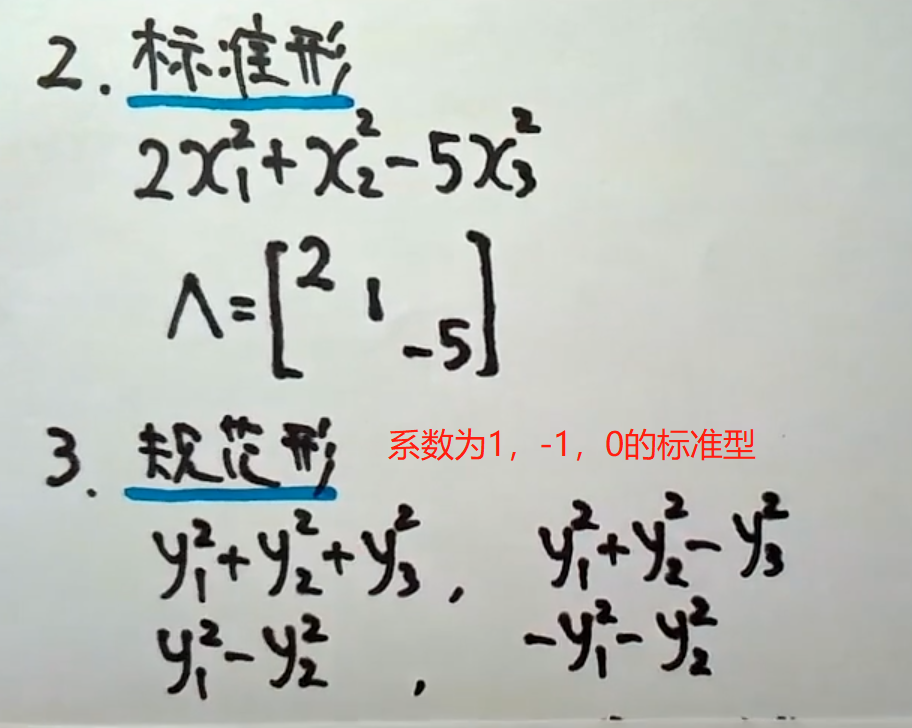 2. 标准形
2x₁²+x₂²-5x₃²
Λ=[2 1 -5]
3. 规范形 系数为1，-1，0的标准型
y₁²+y₂²+y₃², y₁²+y₂²-y₃²
y₁²-y₂², -y₁²-y₂²